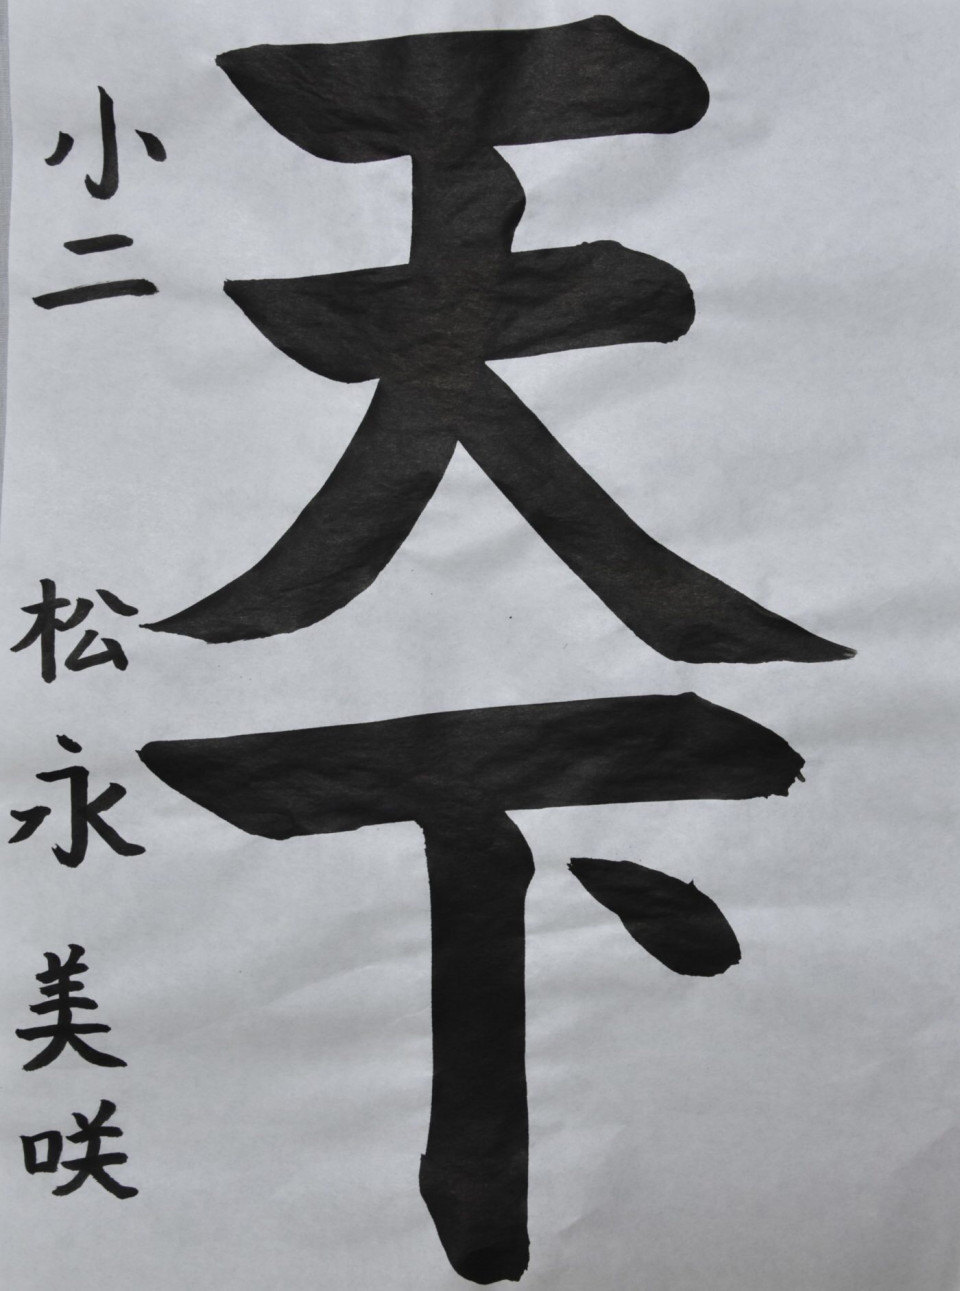 天下
小二 松永美咲